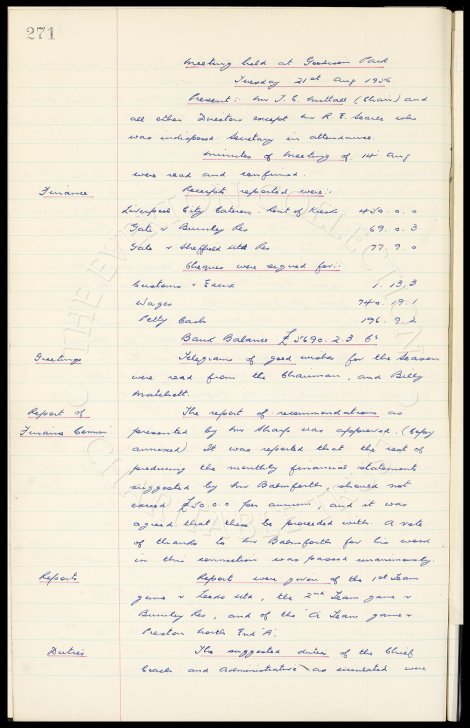 271
Meeting held at Goodison Park
Tuesday 21st Aug 1956.
Present: Mr T. C. Nuttall (Chair) and
all other Directors except Mr R. E. Searle who
was indisposed. Secretary in attendance.
Minutes of Meeting of 14 Aug
were read and confirmed.
Finance Receipts reported were:-
Liverpool City Caterers. Rent of Kiosk 450. 0. 0
Gate v Burnley Res 69. 0. 3
Gate v Sheffield Utd Res 77. 9. 0
Cheques were signed for:-
Customs & Excise 1. 13. 3
Wages 740. 19. 1
Petty Cash 196. 9. 2
Bank Balance £ 5690. 2. 3
Greetings Telegrams of good wishes for the season
were read from the Chairman, and Billy
Matchett.
Report of The report of recommendations as
Finance Comm presented by Mr Sharp was approved. (Copy
annexed). It was reported that the cost of
producing the monthly financial statement
suggested by Mr Balmforth, should not
exceed £50. 0. 0 per annum, and it was
agreed that these be proceeded with. A vote
of thanks to Mr Balmforth for his work
in this connection was passed unanimously.
Reports Reports were given of the 1st Team
game v Leeds Utd, the 2nd Team game v
Burnley Res, and of the 'A' Team game v
Preston North End 'A'.
Duties The suggested duties of the Chief
Coach and Administrative as circulated were